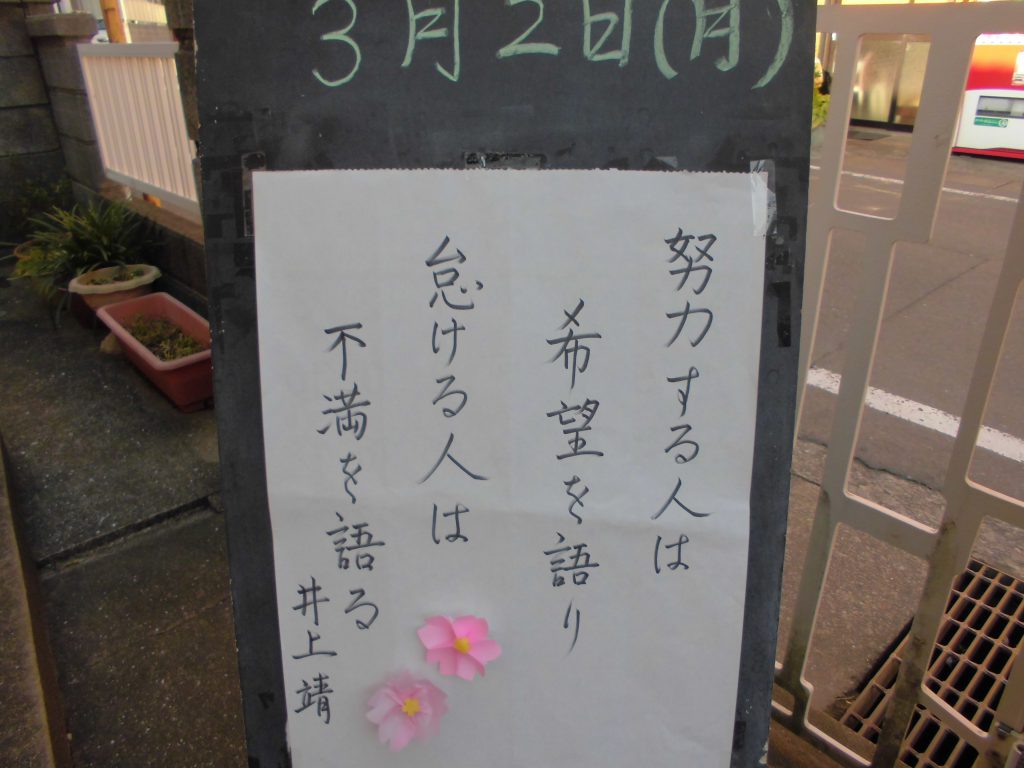 3月2日(月)
努力する人は
希望を語り
怠ける人は
不満を語る
井上靖